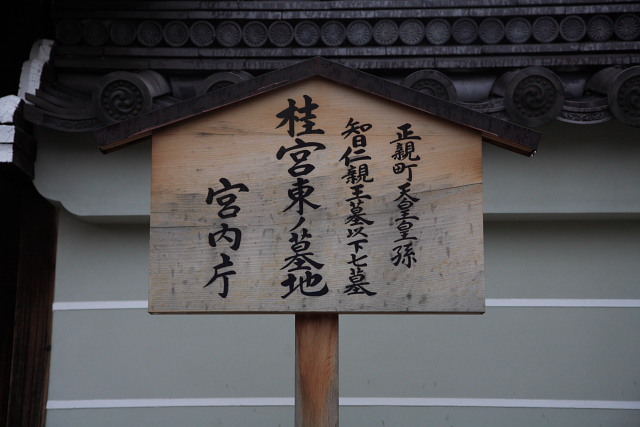 正親町天皇皇孫
智仁親王墓以下七墓
桂宮東ノ墓地
宮内庁